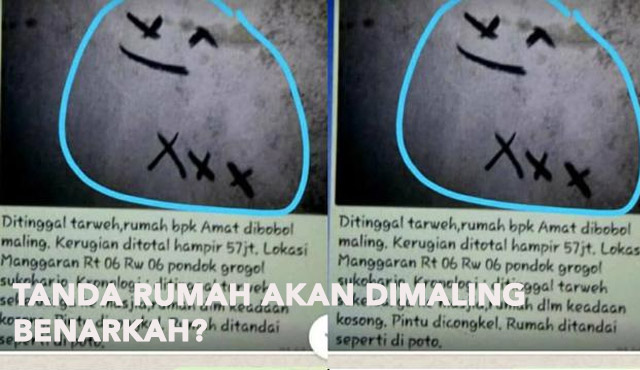 XXX
Ditinggal tarweh,rumah bpk Amat dibobol
maling. Kerugian ditotal hampir 57jt. Lokasi
Manggaran Rt 06 Rw 06 pondok grogol
kosong. Pintu dicongkel. Rumah ditandai
seperti di poto.
XXX
Ditinggal tarweh,rumah bpk Amat dibobol
maling. Kerugian ditotal hampir 57jt. Lokas
Manggaran Rt 06 Rw 06 pondok grogol
ditinggal tarweh
rumah dlm keadaan
kosong. Pintu dicongkel. Rumah ditandai
seperti di poto.
TANDA RUMAH AKAN DIMALING
BENARKAH?